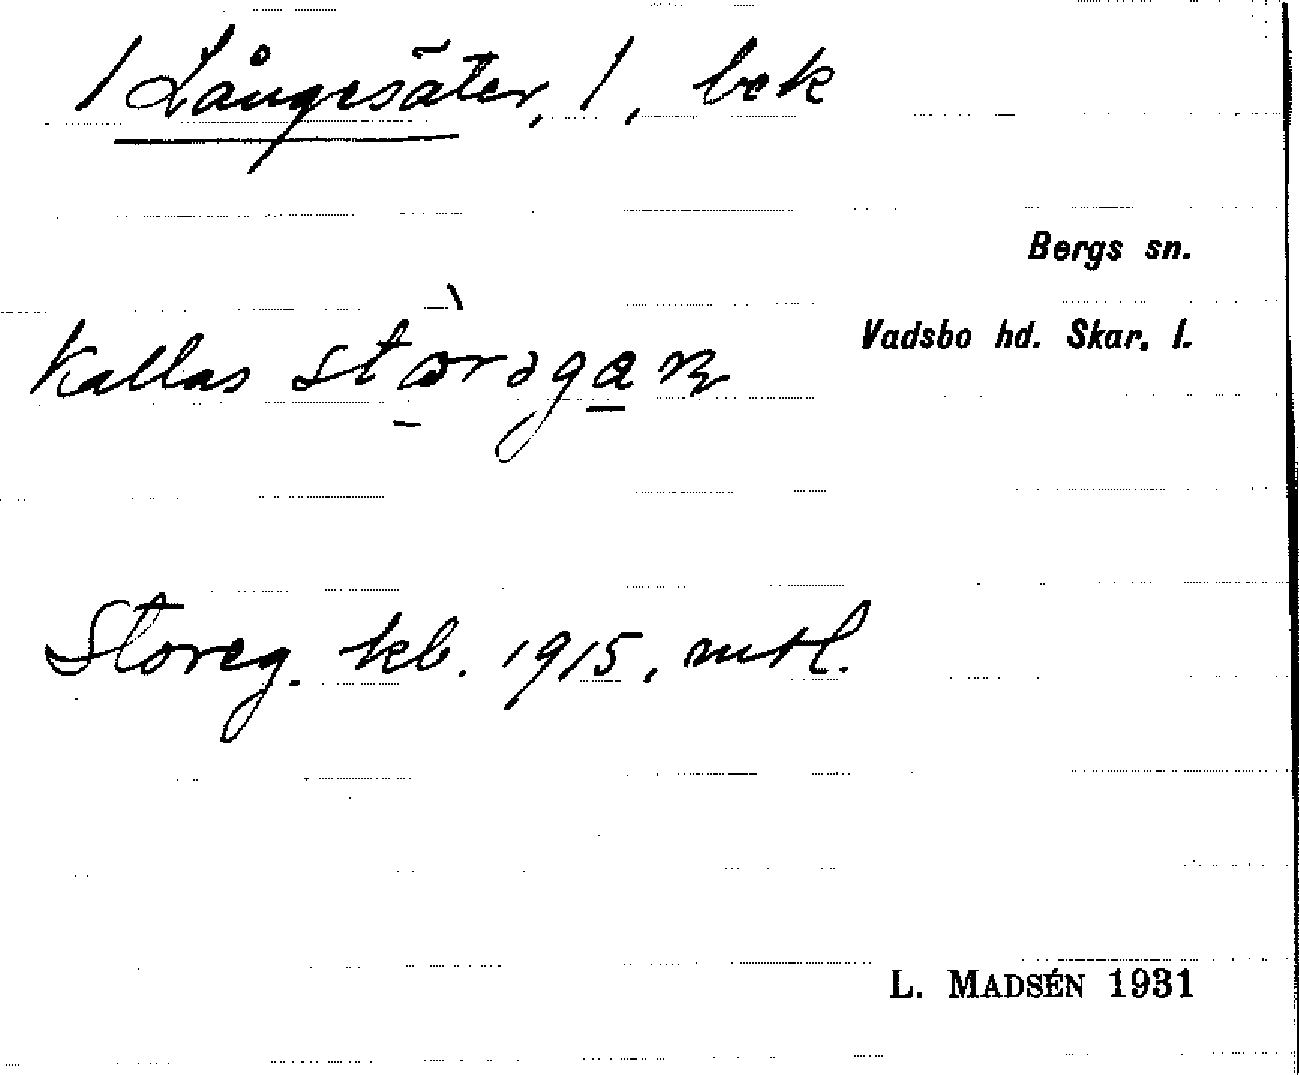 / Långesäter, /, bek
Bergs sn.
Vadsbo hd. Skar. l.
Kallas
Storeg. kb. 1915, mtl.
L. MADSÉN 1931